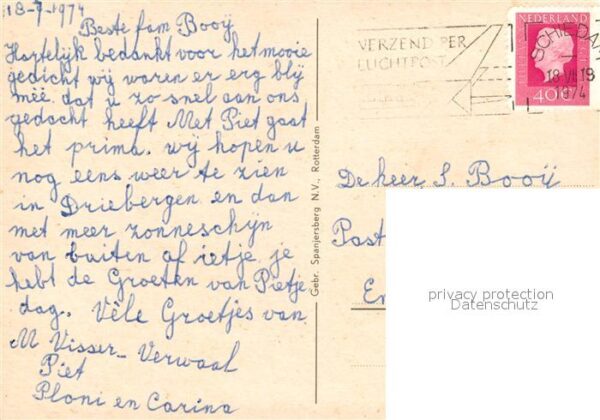 18-7-1974
Beste fam Booÿ
Hartelijk bedankt voor het mooie
gedicht wij waren er erg blij
mëë. dat u zo snel aan ons
gedacht heeft Met Piet gaat
het prima. wij hopen u
nog eens weer te zien
in Driebergen en dan
met meer zonneschijn
van buiten af ietje. je
hebt de Groeten van Pietje
dag. Vele Groetjes van
M Visser-Verwaal
Piet
Ploni en Carina
Gebr. Spanjersberg N.V., Rotterdam
VERZEND PER
LUCHTPOST
NEDERLAND
40c
SCHIEDAM
18.VII.19
1974
De heer S. Booÿ
Post
En
privacy protection
Datenschutz